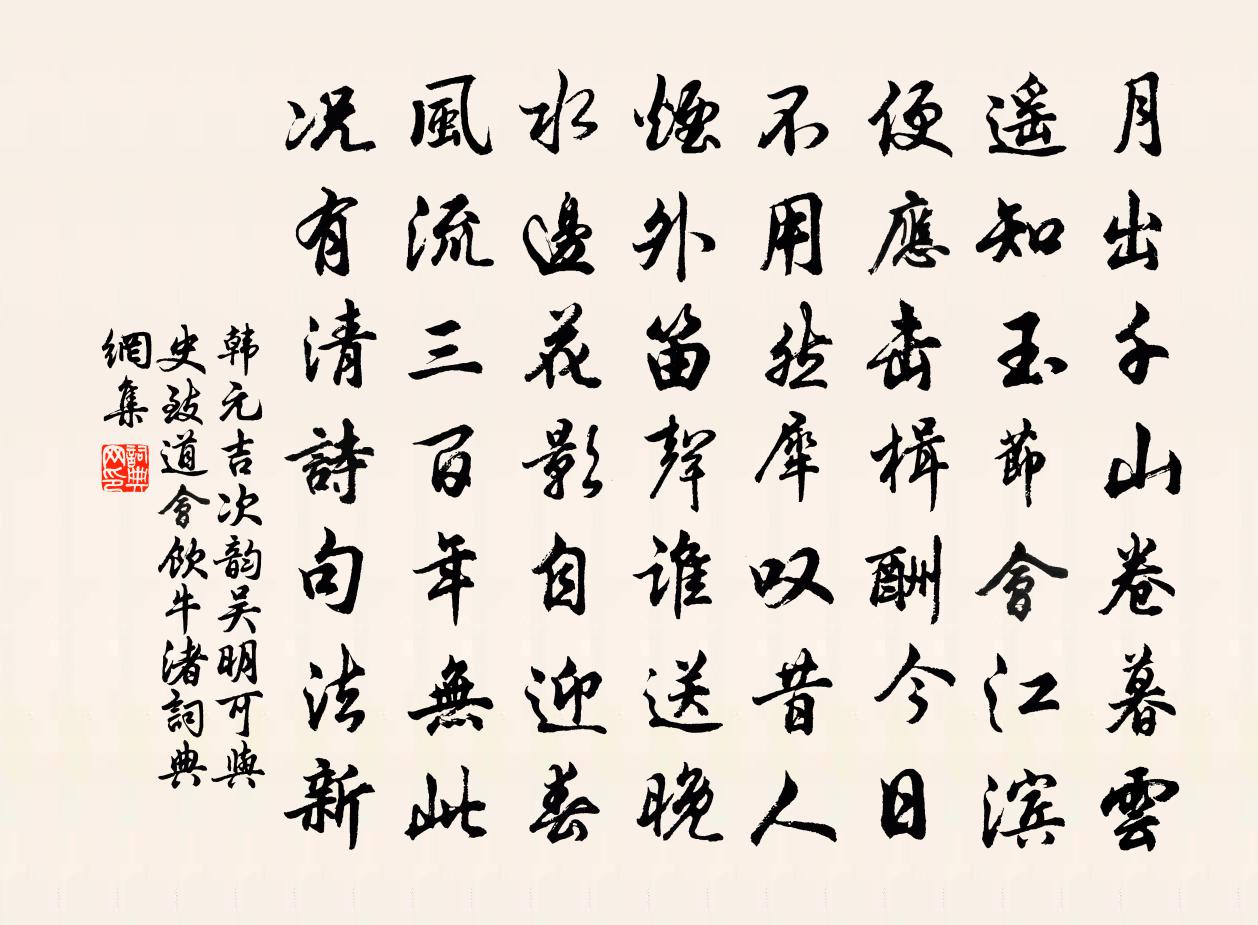 月出千山卷暮雲
遥知玉節會江滨
便應击楫酬今日
不用然犀叹昔人
煙外笛聲谁送晚
水邊花影自迎春
風流三百年無此
况有清詩句法新
韩元吉次韵吴明可與
史致道會饮牛渚詞典
網集
詞典
网印